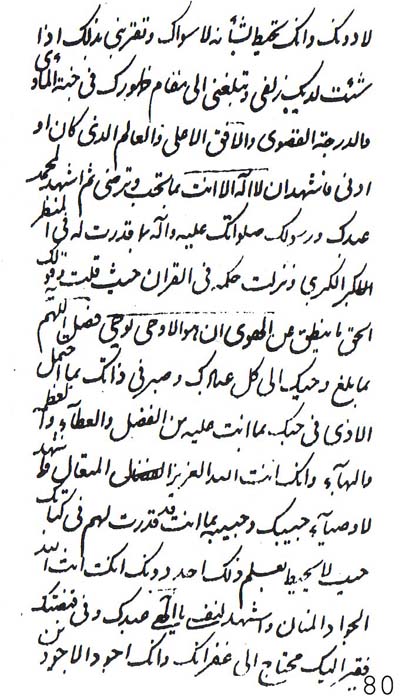 لا دونك وانك تحيط بشأنه لا سواك وتقربني بذلك اذا
شئت لديك زلفى وتبلغني الى مقام ظهورك في جنة المأوى
والدرجة القصوى والافق الاعلى والعالم الذي كان او
ادنى فاشهد ان لا اله الا انت بما تحب وترضى ثم اشهد لمحمد
عبدك ورسولك صلواتك عليه وآله بما قدرت له في المنظر
الاكبر الكبرى ونزلت حكمه في القران حيث قلت وقولك
الحق ما ينطق عن الهوى ان هو الا وحي يوحى فصل اللهم
بما بلغ وحيك الى كل عبادك وصبر في ذاتك بما احتمل
الاذى في حبك بما انت عليه من الفضل والعطآء
والبهآء وانك انت الله العزيز المتعال
لاوصيآء حبيبك وحبيبه بما انت قد قدرت لهم في كتابك
حيث لا يحيط بعلم ذلك احد دونك انك انت الله
الجواد المنان واشهد لنفسي يا الهي عبدك وفي قبضتك
فقير اليك محتاج الى غفرانك وانك اجود الاجودين
80